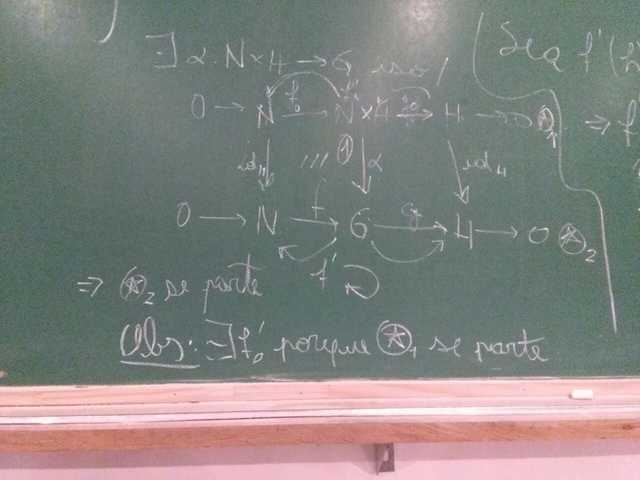 ∃ α: N×H → G iso /
Sea f' (h
0 → N →f₀ N×H →g₀ H → 0 ⊛₁
⇒ f
id_N /// ① α id_H
0 → N →f G →g H → 0 ⊛₂
f'
⇒ ⊛₂ se parte
Obs: ∃ f₀' porque ⊛₁ se parte